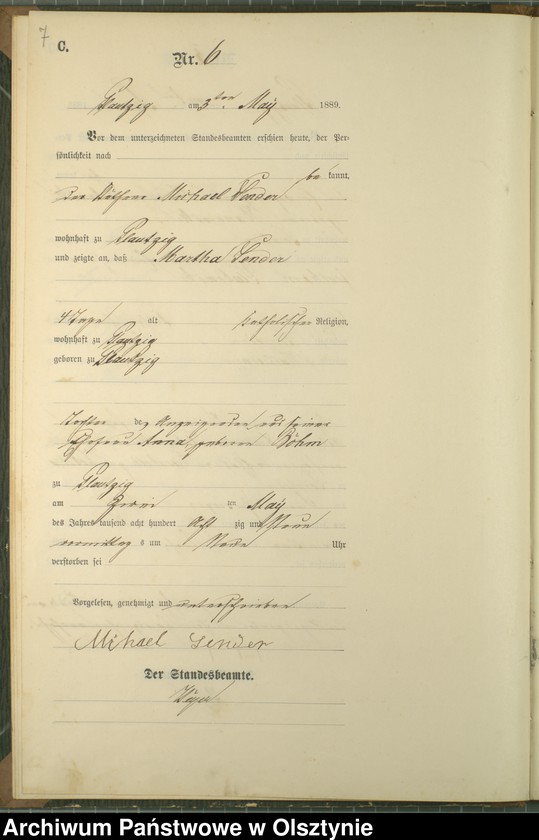 7
C.
Nr. 6
Plautzig am 3ten May 1889.
Vor dem unterzeichneten Standesbeamten erschien heute, der Per-
sönlichkeit nach
be kannt,
der Käthner Michael Sender
wohnhaft zu Plautzig
und zeigte an, daß Martha Sender
4 Tage alt katholischer Religion,
wohnhaft zu Plautzig
geboren zu Plautzig
Tochter des Anzeigenden und seiner
Ehefrau Anna, geborene Böhm
zu Plautzig
am Zwei ten May
des Jahres tausend acht hundert Acht zig und Neun
vormittag s um Neun Uhr
verstorben sei
Vorgelesen, genehmigt und unterschrieben
Mihael Sender
Der Standesbeamte.
Archiwum Państwowe w Olsztynie